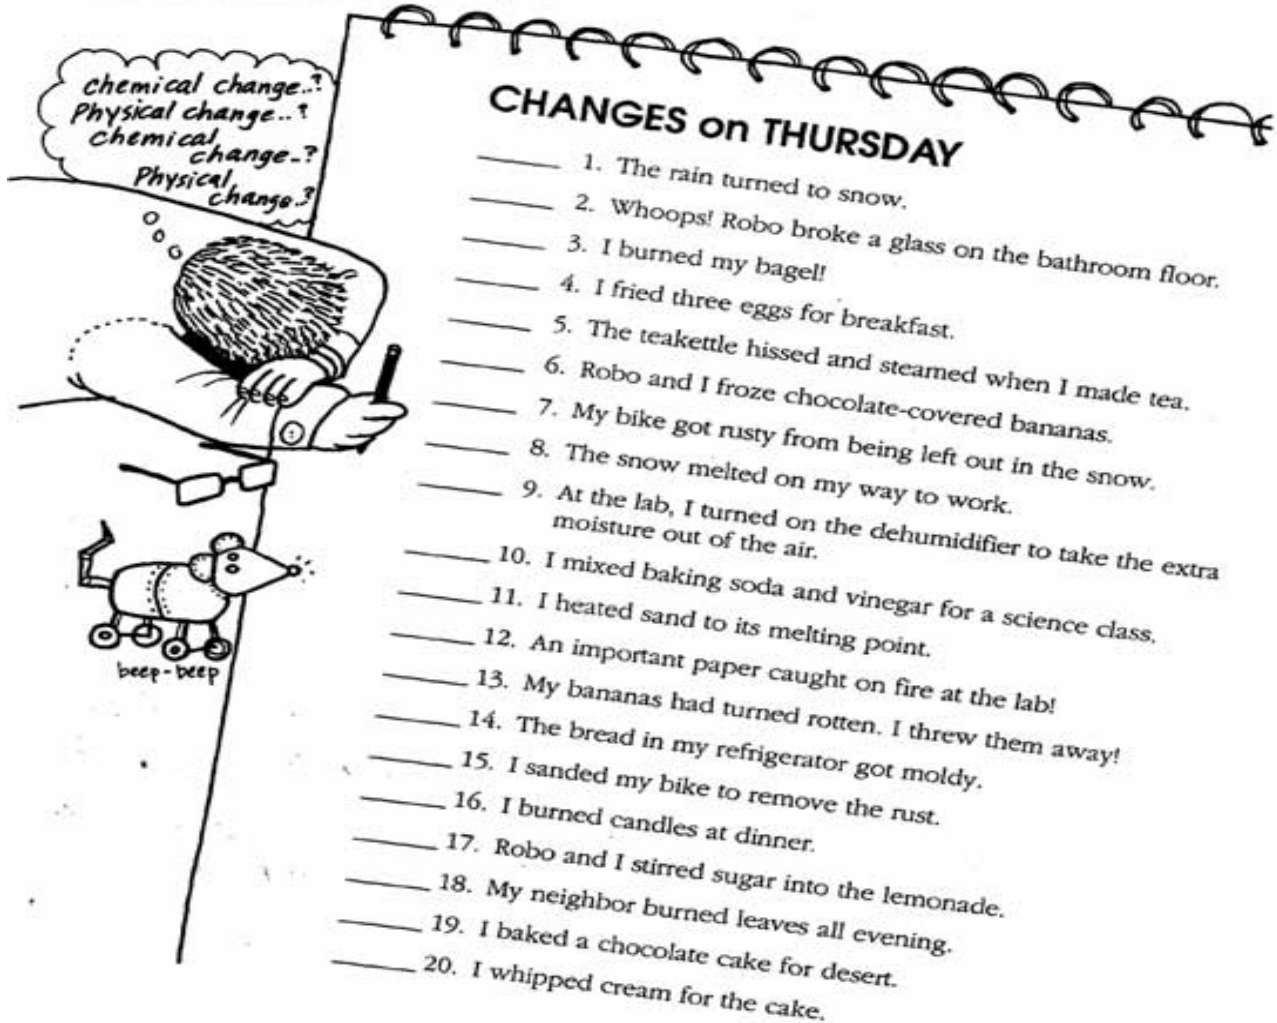 chemical change..?
Physical change..?
chemical
change..?
Physical
change.?
CHANGES on THURSDAY
1. The rain turned to snow.
2. Whoops! Robo broke a glass on the bathroom floor.
3. I burned my bagel!
4. I fried three eggs for breakfast.
5. The teakettle hissed and steamed when I made tea.
6. Robo and I froze chocolate-covered bananas.
7. My bike got rusty from being left out in the snow.
8. The snow melted on my way to work.
9. At the lab, I turned on the dehumidifier to take the extra
moisture out of the air.
10. I mixed baking soda and vinegar for a science class.
11. I heated sand to its melting point.
12. An important paper caught on fire at the lab!
13. My bananas had turned rotten. I threw them away!
14. The bread in my refrigerator got moldy.
15. I sanded my bike to remove the rust.
16. I burned candles at dinner.
17. Robo and I stirred sugar into the lemonade.
18. My neighbor burned leaves all evening.
19. I baked a chocolate cake for desert.
20. I whipped cream for the cake.
beep-beep